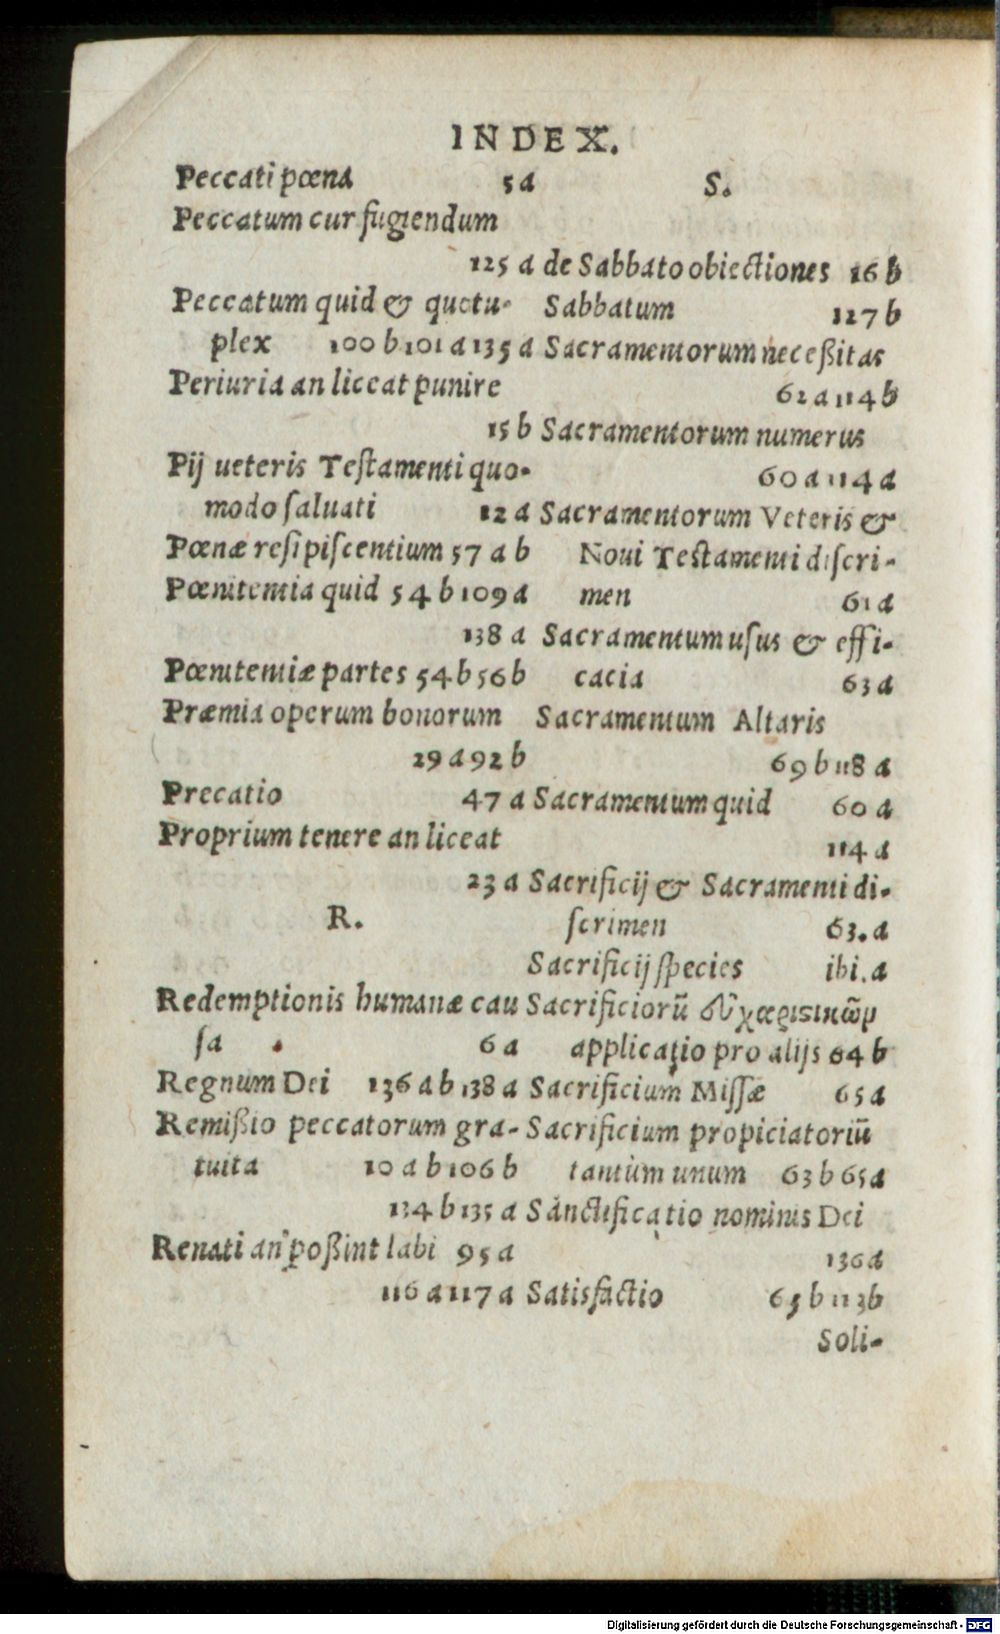 INDEX.
Peccati pœna 5 a
Peccatum cur fugiendum
125 a
Peccatum quid & quotu-
plex 100 b 101 a 135 a
Periuria an liceat punire
15 b
Pij ueteris Testamenti quo-
modo saluati 12 a
Pœnæ resipiscentium 57 a b
Pœnitentia quid 54 b 109 a
138 a
Pœnitentiæ partes 54 b 56 b
Præmia operum bonorum
29 a 92 b
Precatio 47 a
Proprium tenere an liceat
23 a
R.
Redemptionis humanæ cau
sa 6 a
Regnum Dei 136 a b 138 a
Remißio peccatorum gra-
tuita 10 a b 106 b
134 b 135 a
Renati an poßint labi 95 a
116 a 117 a
S.
de Sabbato obiectiones 16 b
Sabbatum 127 b
Sacramentorum neceßitas
62 a 114 b
Sacramentorum numerus
60 a 114 a
Sacramentorum Veteris &
Noui Testamenti discri-
men 61 a
Sacramentum usus & effi-
cacia 63 a
Sacramentum Altaris
69 b 118 a
Sacramentum quid 60 a
114 a
Sacrificij & Sacramenti di-
scrimen 63. a
Sacrificij species ibi. a
Sacrificiorū εὐχαριστικῶμ
applicatio pro alijs 64 b
Sacrificium Missæ 65 a
Sacrificium propiciatoriū
tantùm unum 63 b 65 a
Sanctificatio nominis Dei
136 a
Satisfactio 65 b 113 b
Soli-
Digitalisierung gefördert durch die Deutsche Forschungsgemeinschaft - DFG